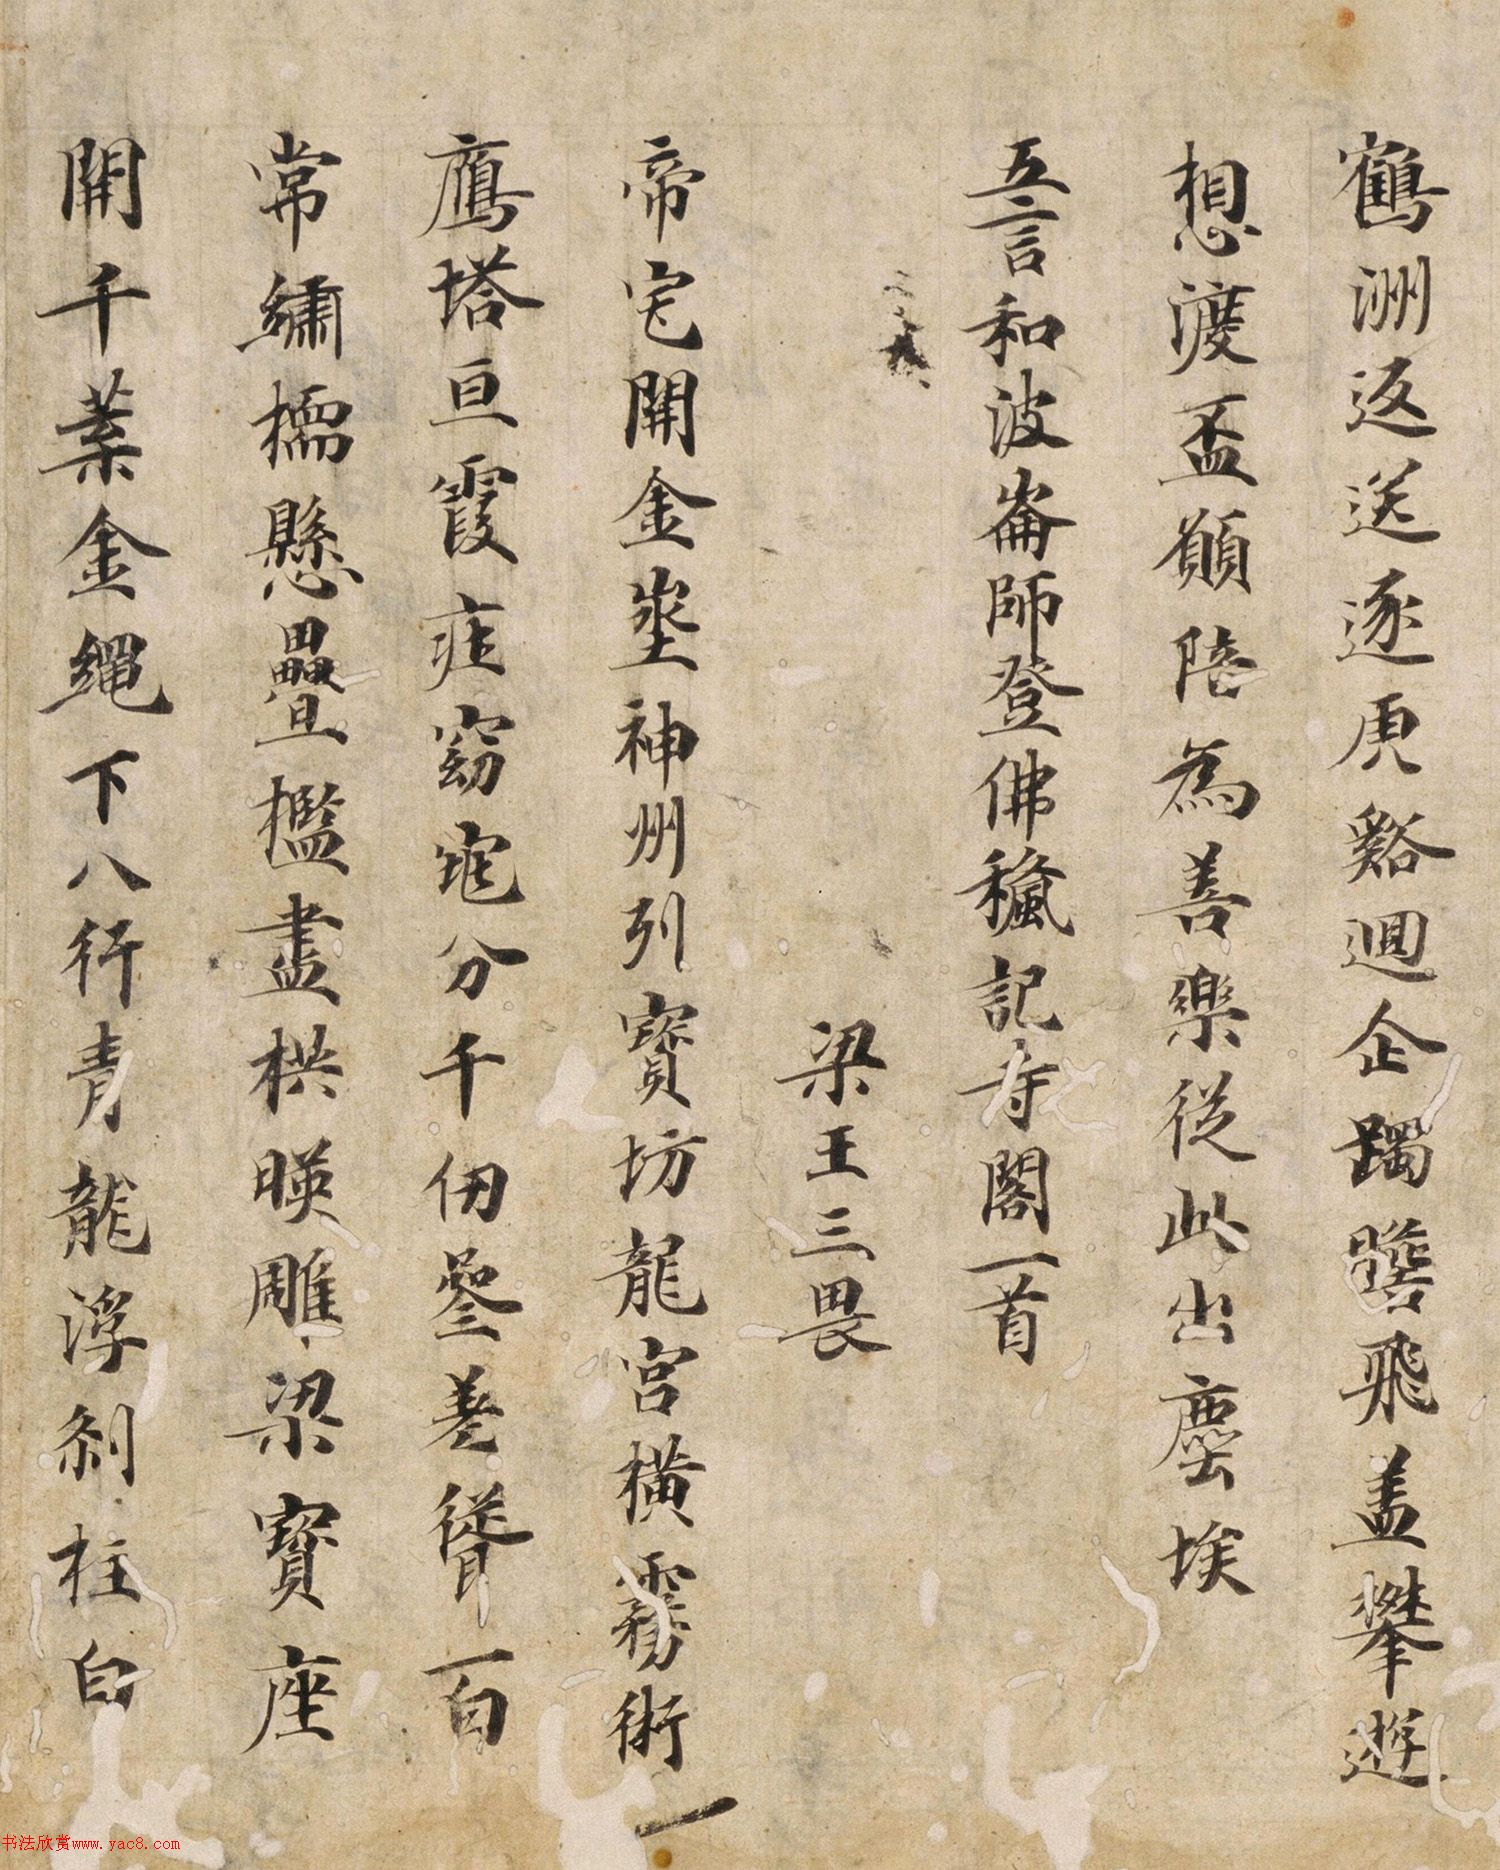 鶴洲返送逐庾谿迴企躅𨇤飛盖攀遊
想渡盃願陪為善樂從此出塵埃
五言和波崙師登佛穐記寺閣一首
梁王三畏
帝宅開金埊神州列寳坊龍宮橫霧術一
鴈塔亘霞庄窈窕分千仞叅差聳百
常繡檽懸疊檻畫栱暎雕梁寳座
開千葉金繩下八行青龍浮刹柱白
书法欣赏www.yac8.com